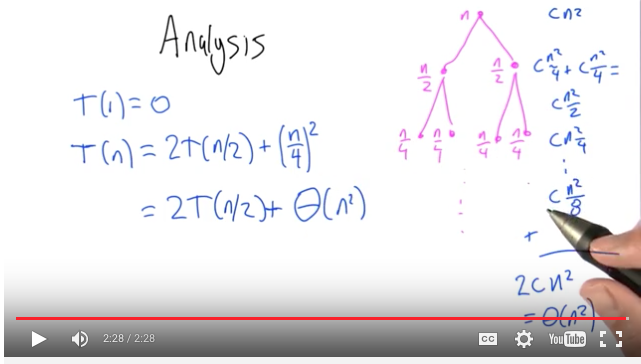 Analysis
T(1) = 0
T(n) = 2T(n/2) + (n/4)²
= 2T(n/2) + Θ(n²)
n
cn²
n/2 n/2
c n²/4 + c n²/4 =
c n²/2
n/4 n/4 n/4 n/4
cn²/4
⋮
c n²/8
+
2cn²
= Θ(n²)
2:28 / 2:28
CC
YouTube